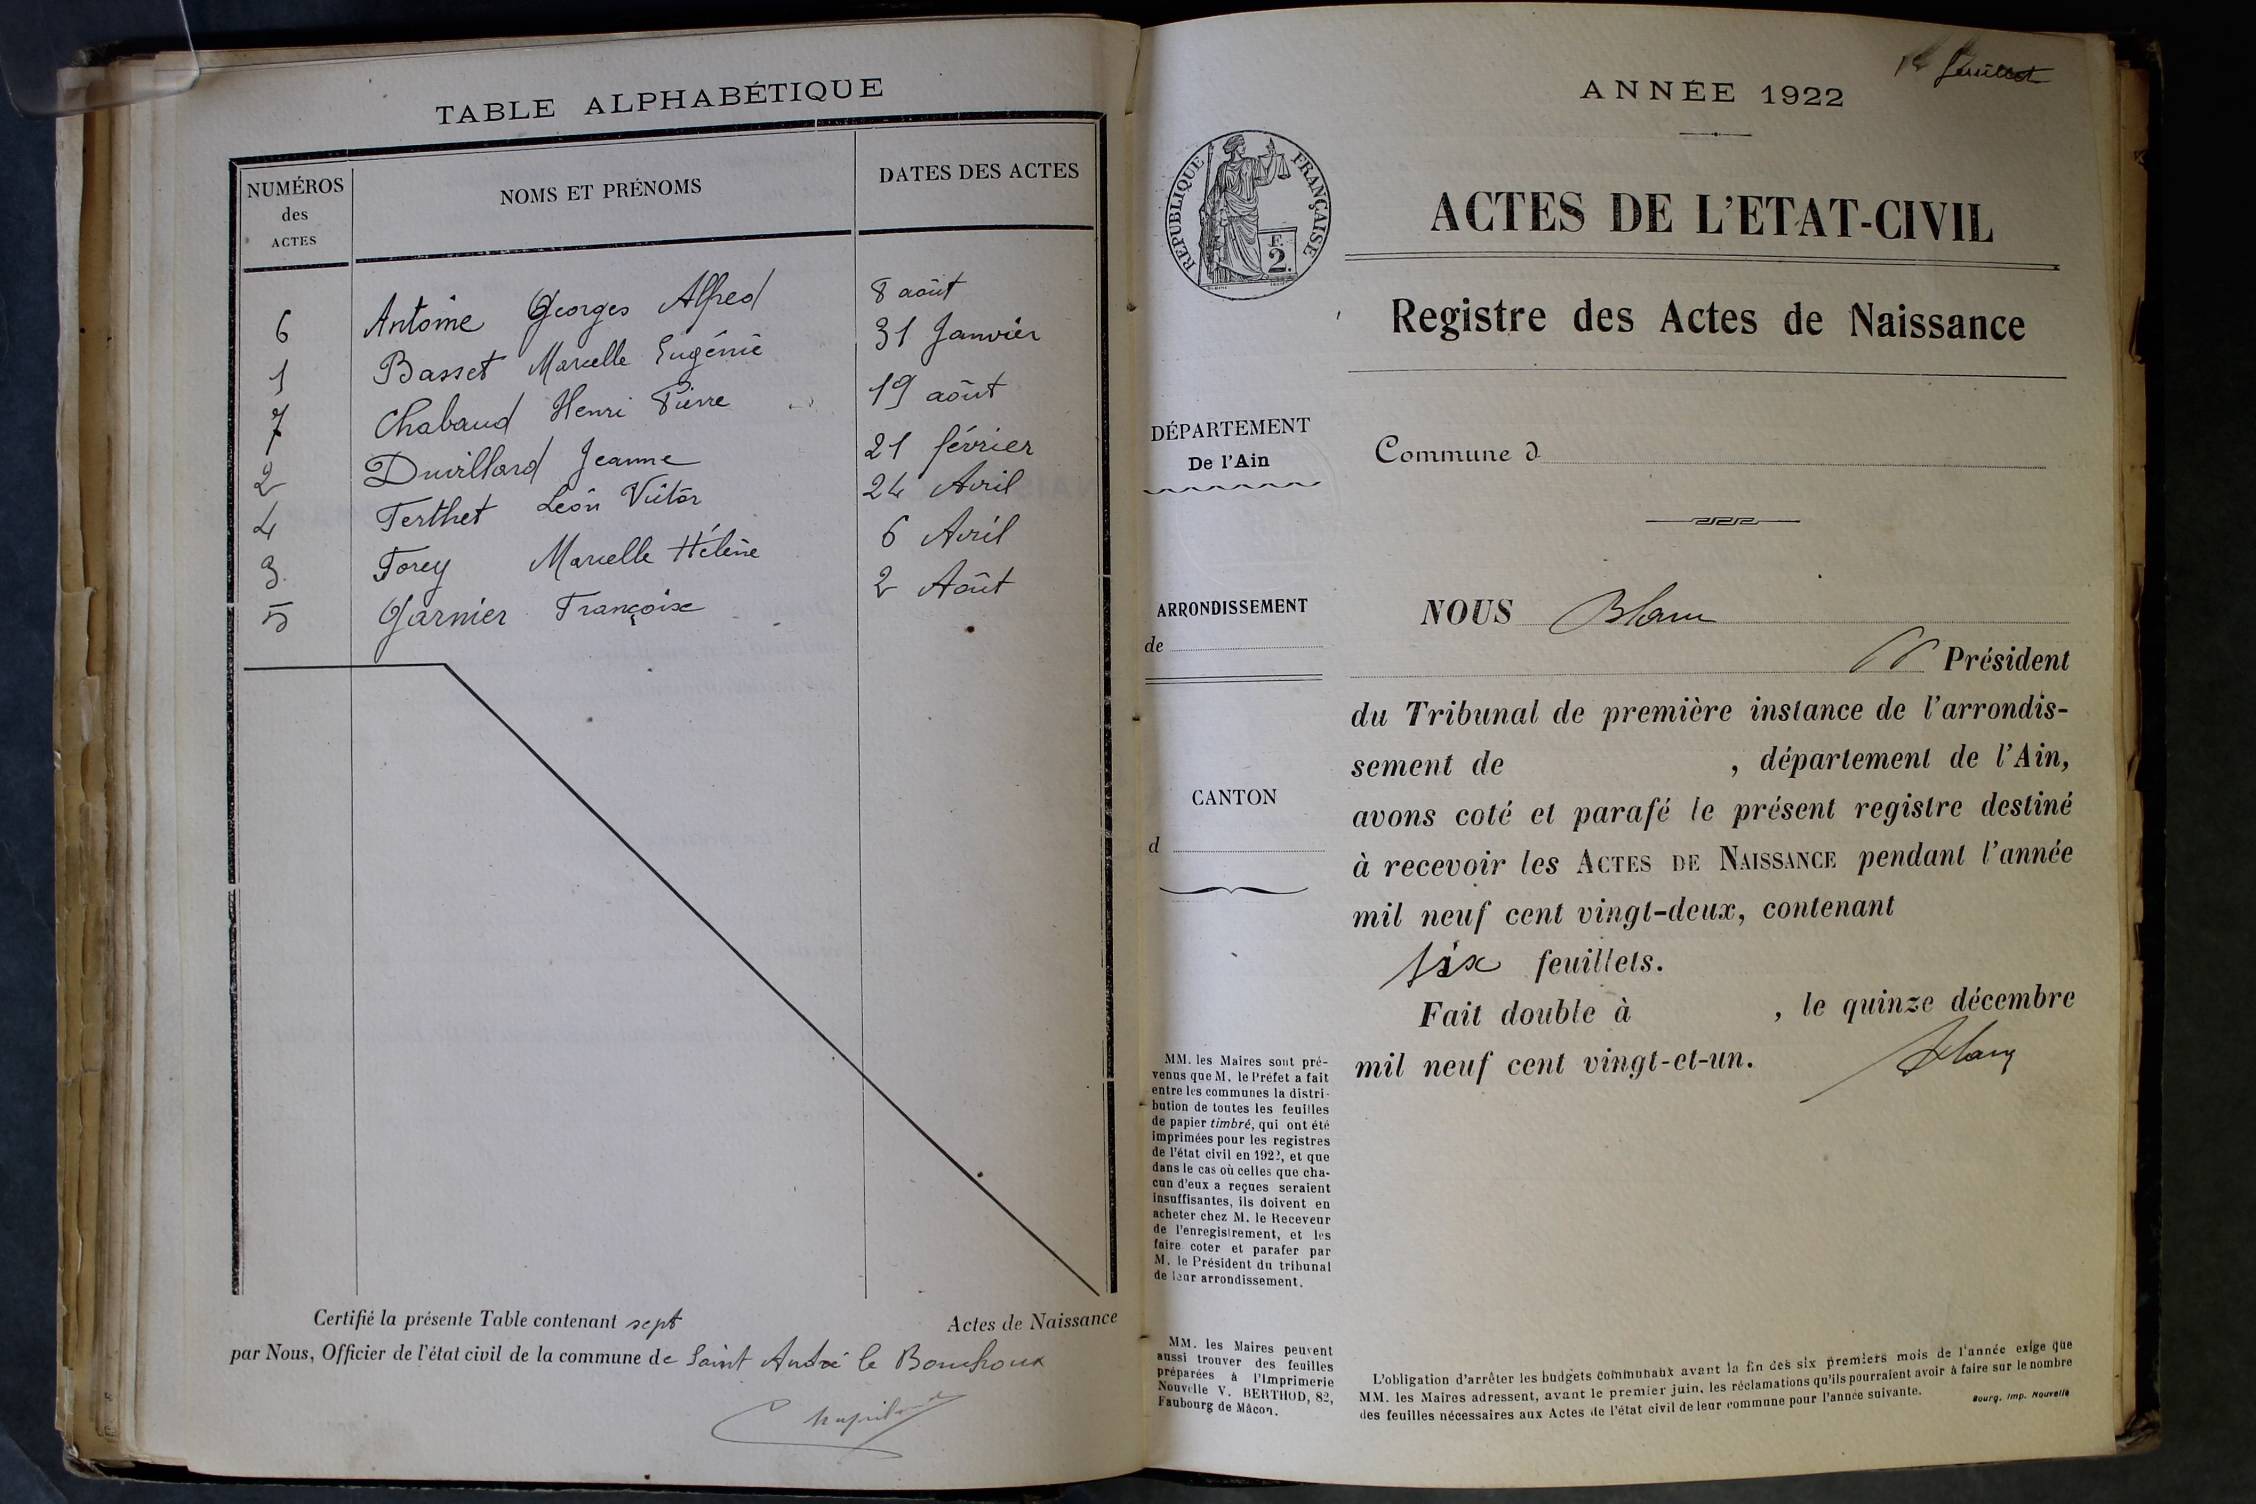 TABLE ALPHABÉTIQUE
NUMÉROS des ACTES
NOMS ET PRÉNOMS
DATES DES ACTES
6 Antoine Georges Alfred 8 août
1 Basset Marcelle Eugénie 31 Janvier
7 Chabaud Henri Pierre 19 août
2 Duvillard Jeanne 21 février
4 Ferthet Léon Victor 24 Avril
3 Forey Marcelle Hélène 6 Avril
5 Garnier Françoise 2 Août
Certifié la présente Table contenant sept Actes de Naissance
par Nous, Officier de l'état civil de la commune de Saint André le Bouchoux
1er feuillet
ANNÉE 1922
RÉPUBLIQUE FRANÇAISE
F.
2.
ACTES DE L'ETAT-CIVIL
Registre des Actes de Naissance
DÉPARTEMENT
De l'Ain
Commune d
ARRONDISSEMENT
de
CANTON
d
NOUS Blanc
Président
du Tribunal de première instance de l'arrondis-
sement de , département de l'Ain,
avons coté et parafé le présent registre destiné
à recevoir les ACTES DE NAISSANCE pendant l'année
mil neuf cent vingt-deux, contenant
six feuillets.
Fait double à , le quinze décembre
mil neuf cent vingt-et-un.
Blanc
MM. les Maires sont pré-
venus que M. le Préfet a fait
entre les communes la distri-
bution de toutes les feuilles
de papier timbré, qui ont été
imprimées pour les registres
de l'état civil en 1922, et que
dans le cas où celles que cha-
cun d'eux a reçues seraient
insuffisantes, ils doivent en
acheter chez M. le Receveur
de l'enregistrement, et les
faire coter et parafer par
M. le Président du tribunal
de leur arrondissement.
MM. les Maires peuvent
aussi trouver des feuilles
préparées à l'Imprimerie
Nouvelle V. BERTHOD, 82,
Faubourg de Mâcon.
L'obligation d'arrêter les budgets communaux avant la fin des six premiers mois de l'année exige que
MM. les Maires adressent, avant le premier juin, les réclamations qu'ils pourraient avoir à faire sur le nombre
des feuilles nécessaires aux Actes de l'état civil de leur commune pour l'année suivante.
Bourg, Imp. Nouvelle